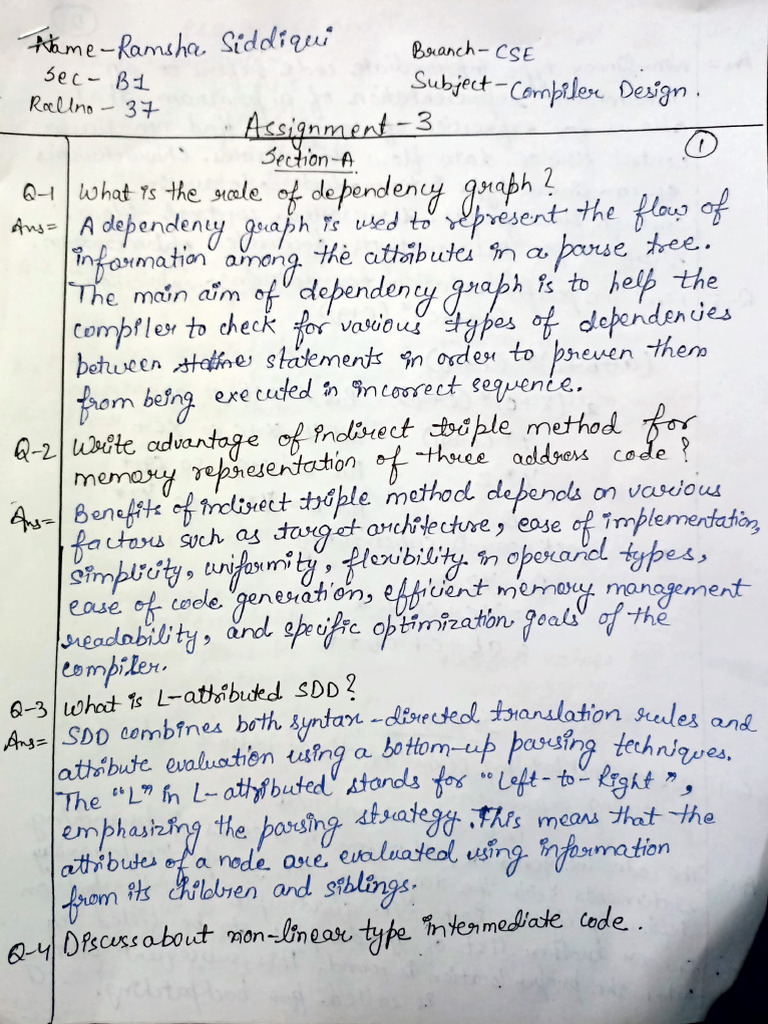 Name - Ramsha Siddiqui
Branch - CSE
Sec - B1
Subject - Compiler Design.
Rollno - 37
Assignment - 3
1
Section-A
Q-1 What is the role of dependency graph?
Ans= A dependency graph is used to represent the flow of
information among the attributes in a parse tree.
The main aim of dependency graph is to help the
compiler to check for various types of dependencies
between statements in order to preven them
from being executed in incorrect sequence.
Q-2 Write advantage of indirect triple method for
memory representation of three address code?
Ans= Benefits of indirect triple method depends on various
factors such as target architecture, ease of implementation,
simplicity, uniformity, flexibility in operand types,
ease of code generation, efficient memory management
readability, and specific optimization goals of the
compiler.
Q-3 What is L-attributed SDD?
Ans= SDD combines both syntax-directed translation rules and
attribute evaluation using a bottom-up parsing techniques.
The "L" in L-attributed stands for "Left-to-Right",
emphasizing the parsing strategy. This means that the
attributes of a node are evaluated using information
from its children and siblings.
Q-4 Discuss about non-linear type intermediate code.